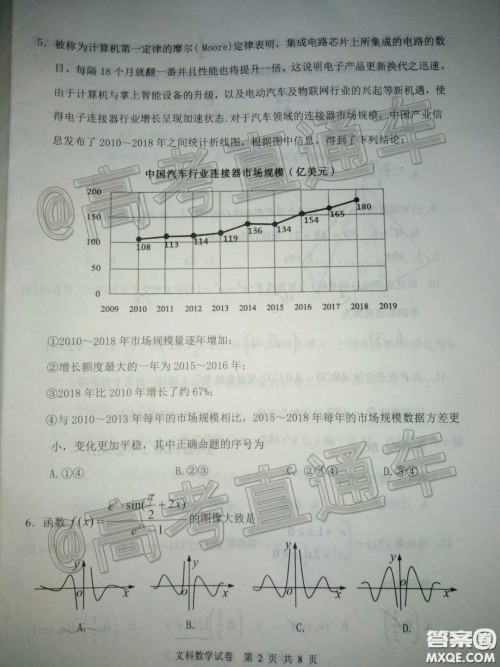 5. 被称为计算机第一定律的摩尔(Moore)定律表明，集成电路芯片上所集成的电路的数
目，每隔18个月就翻一番并且性能也将提升一倍。这说明电子产品更新换代之迅速。
由于计算机与掌上智能设备的升级，以及电动汽车及物联网行业的兴起等新机遇，使
得电子连接器行业增长呈现加速状态.对于汽车领域的连接器市场规模，中国产业信
息发布了2010～2018年之间统计折线图，根据图中信息，得到了下列结论:
中国汽车行业连接器市场规模（亿美元）
200
150
100
50
0
108 113 114 119 136 134 154 165 180
2009 2010 2011 2012 2013 2014 2015 2016 2017 2018 2019
①2010～2018年市场规模量逐年增加;
②增长额度最大的一年为2015～2016年;
③2018年比2010年增长了约67%;
④与2010～2013年每年的市场规模相比，2015～2018年每年的市场规模数据方差更
小，变化更加平稳，其中正确命题的序号为
A.①④ B.②③ C. ②③④ D.③④
6. 函数f(x)= e^x sin(π/2+2x) / e^{2x}-1 的图像大致是
y x O y x O y x O y x O
A. B. C. D.
文科数学试卷 第 2 页 共 8 页
@高考直通车
@高考直通车
答案圈
MXQE.COM